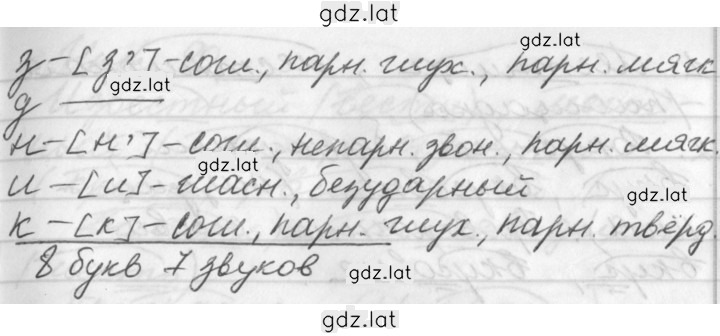 gdz.lat
gdz.lat
з – [з'] – согл., парн. глух., парн. мягк
gdz.lat
д ———
н – [н'] – согл., непарн. звон., парн. мягк.
gdz.lat
и – [и] – гласн., безударный
gdz.lat
к – [к] – согл., парн. глух., парн. твёрд.
8 букв 7 звуков
gdz.lat
gdz.lat